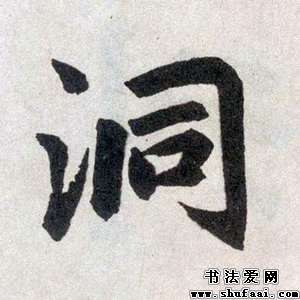 洞
书法爱网
www.shufaai.com